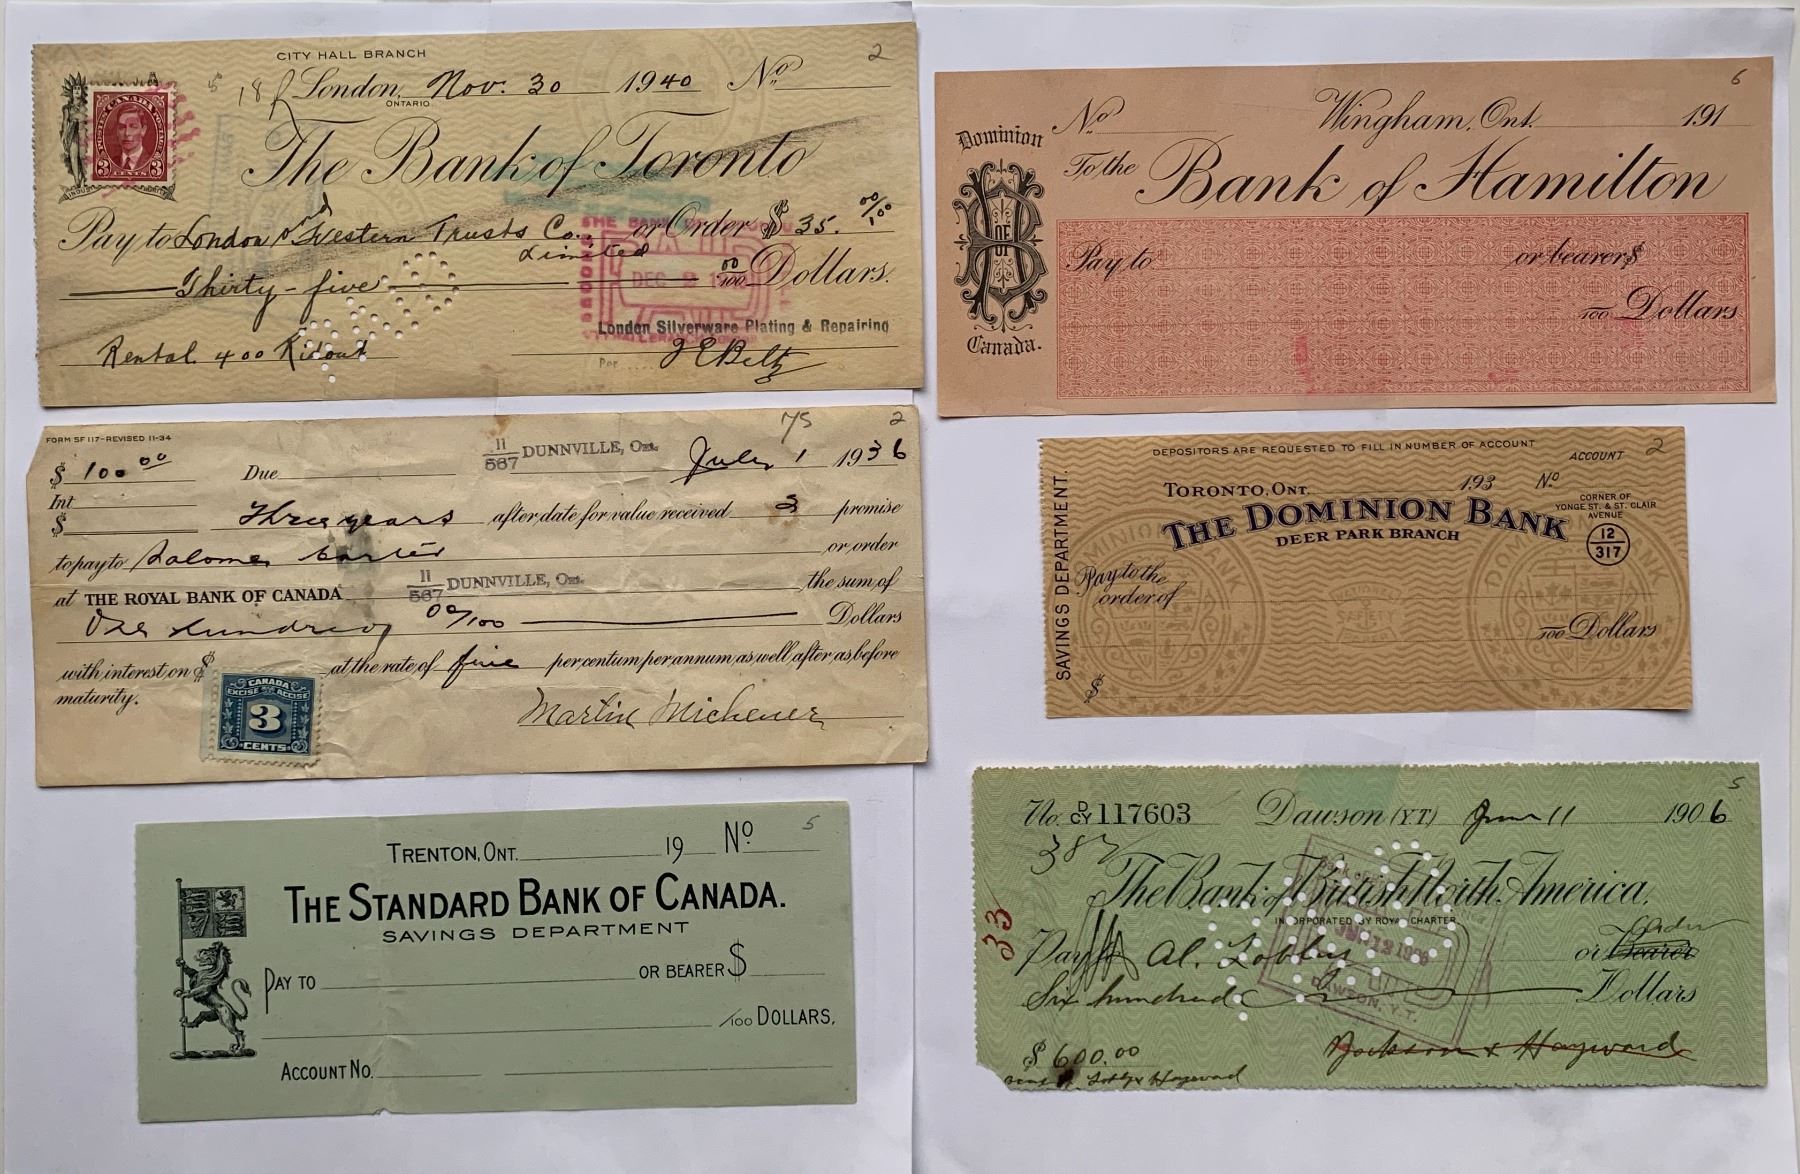 CITY HALL BRANCH
2
5
18
London, Nov. 30 1940 No
ONTARIO
CANADA
3 CENTS 3
The Bank of Toronto
Pay to London and Western Trusts Co., or Order $ 35. 00/100
Limited
Thirty-five 00/100 Dollars.
PAID
DEC 2
London Silverware Plating & Repairing
Rental 400 Ridout
Per
J E Beltz
FORM SF 117-REVISED 11-34
75
2
$ 100.00 Due 11/567 DUNNVILLE, Ont. July 1 1936
Int
$ Three years after date for value received I promise
to pay to Salome Carter or order
at THE ROYAL BANK OF CANADA 11/567 DUNNVILLE, Ont. the sum of
One hundred 00/100 Dollars
with interest on $ at the rate of five per centum per annum as well after as before
maturity.
CANADA
EXCISE ACCISE
3
CENTS
Martin Michener
5
TRENTON, ONT. 19 No
THE STANDARD BANK OF CANADA.
SAVINGS DEPARTMENT
PAY TO OR BEARER $
/100 DOLLARS,
ACCOUNT NO.
6
No Wingham, Ont. 191
Dominion
To the
Bank of Hamilton
B OF H
Pay to or bearer $
/100 Dollars
Canada.
DEPOSITORS ARE REQUESTED TO FILL IN NUMBER OF ACCOUNT
ACCOUNT 2
TORONTO, ONT. 193 No
THE DOMINION BANK
CORNER OF
YONGE ST. & ST. CLAIR
AVENUE
DEER PARK BRANCH
12
317
SAVINGS DEPARTMENT.
Pay to the
order of
/100 Dollars
$
5
No. D/CY 117603 Dawson (Y.T.) June 11 1906
The Bank of British North America.
INCORPORATED BY ROYAL CHARTER
33
Order
Pay Al. Lobley or Bearer
Six hundred Dollars
JUN 12 1906
DAWSON, Y.T.
$ 600.00
Jackson & Hayward